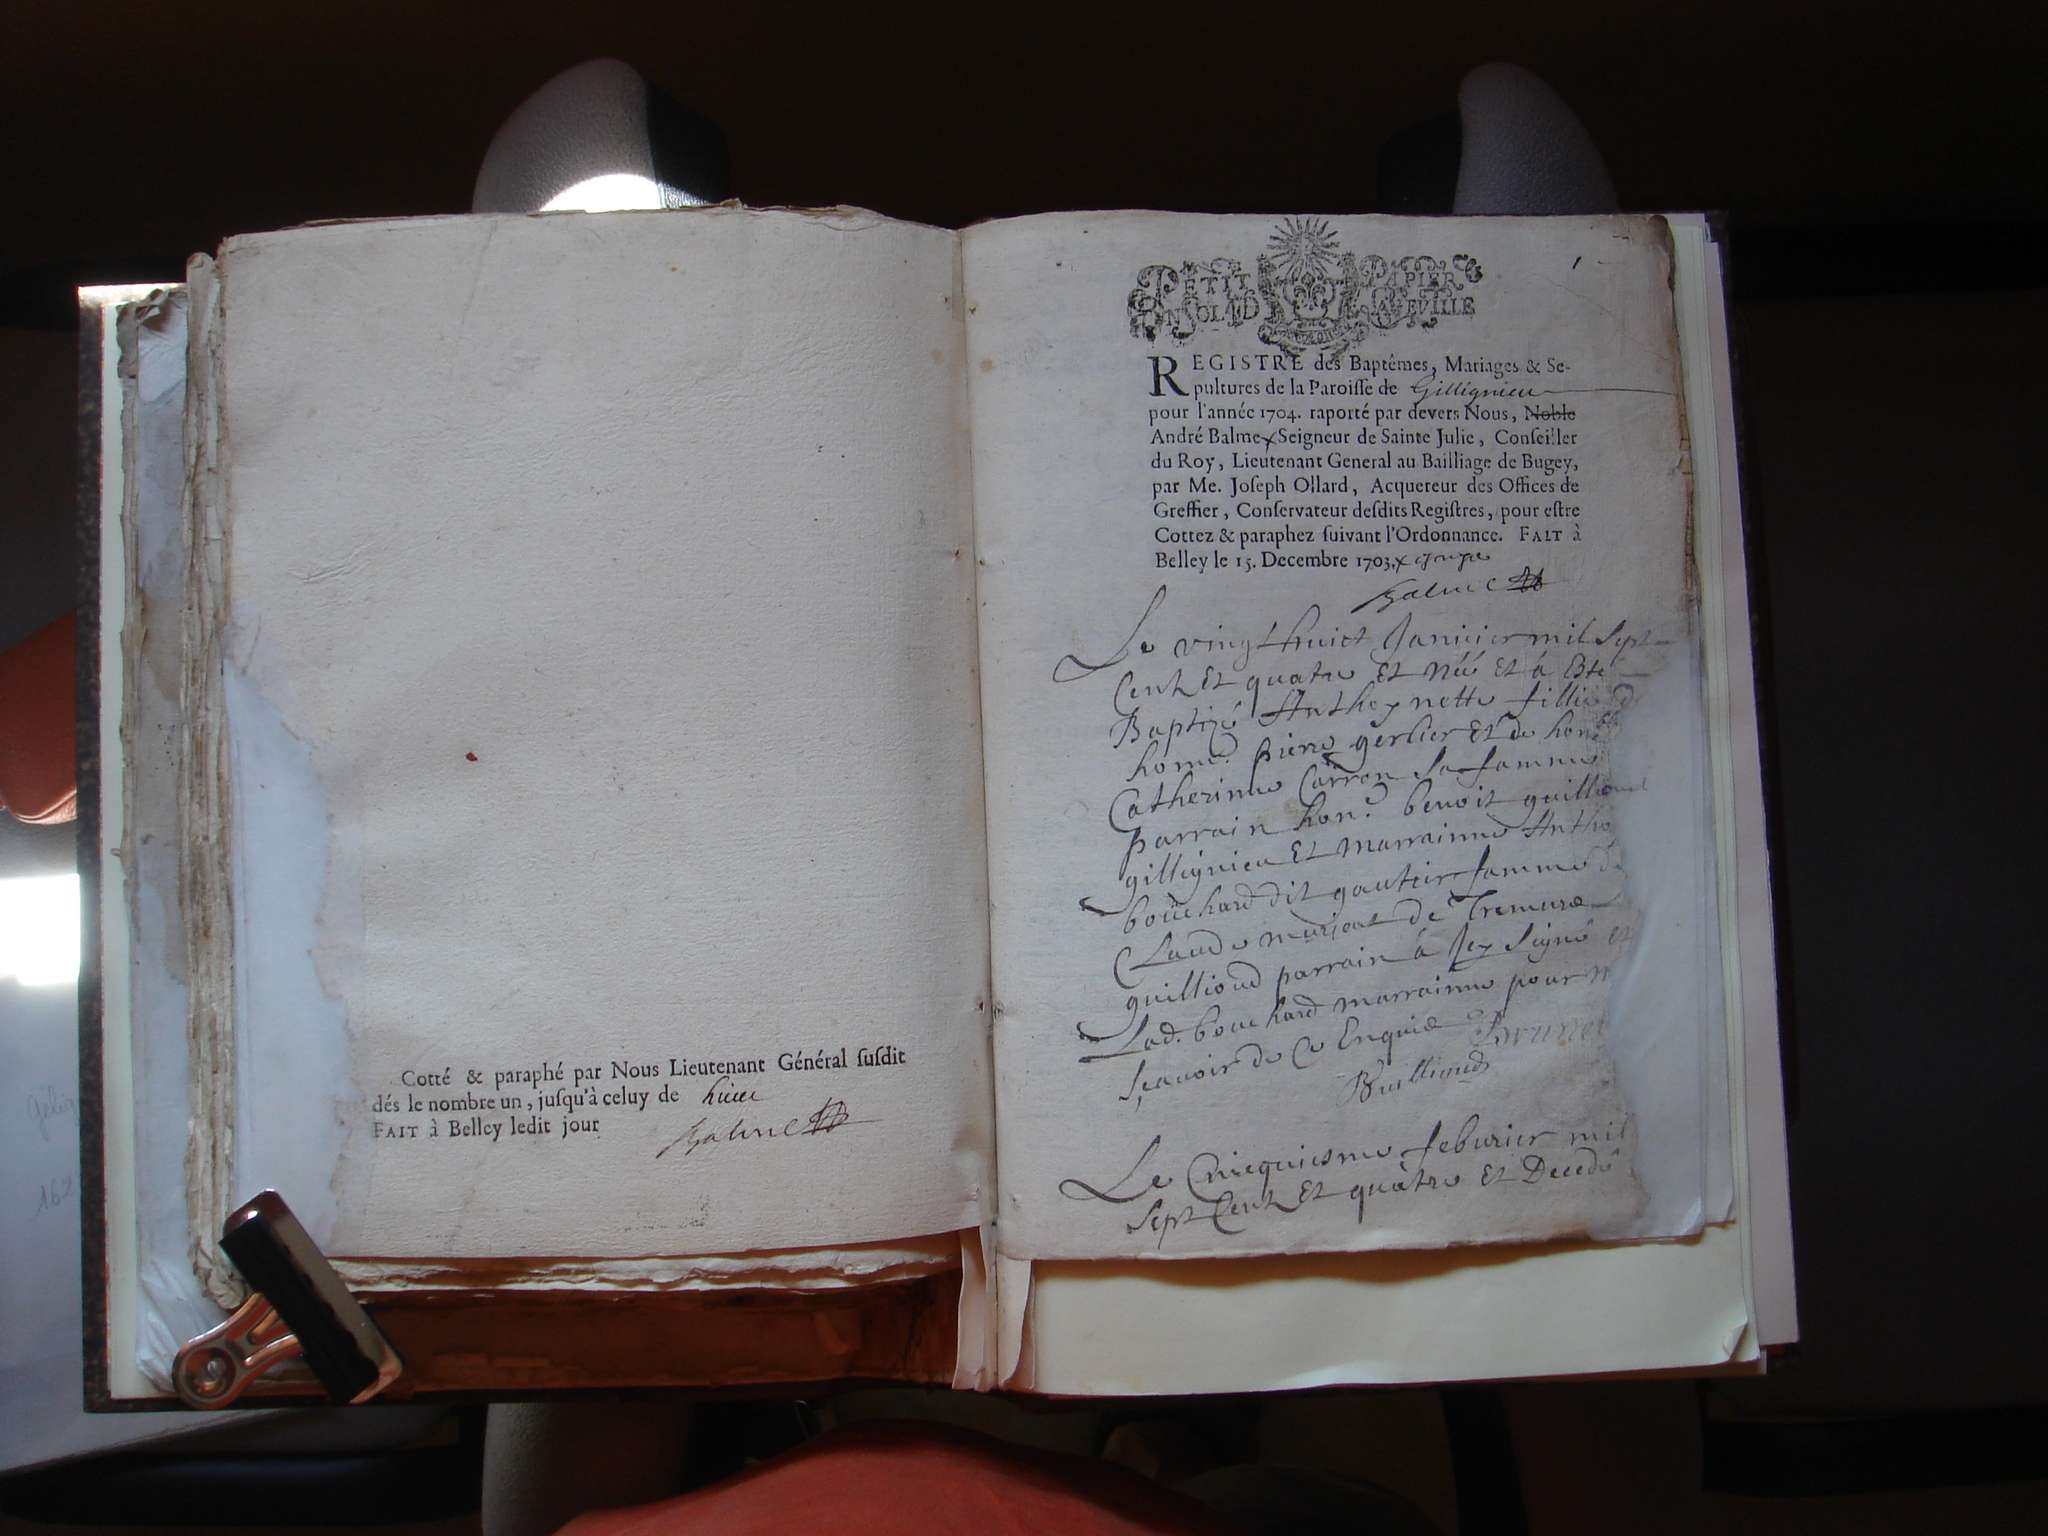 Cotté & paraphé par Nous Lieutenant Général susdit
dés le nombre un, jusqu'à celuy de
FAIT à Belley ledit jour
Balme
1
PETIT PAPIER
REGISTRE des Baptêmes, Mariages & Se-
pultures de la Paroisse de Gillignieu
pour l'année 1704. raporté par devers Nous, Noble
André Balme x Seigneur de Sainte Julie, Conseiller
du Roy, Lieutenant General au Bailliage de Bugey,
par Me. Joseph Ollard, Acquereur des Offices de
Greffier, Conservateur desdits Registres, pour estre
Cottez & paraphez suivant l'Ordonnance. FAIT à
Belley le 15. Decembre 1703. x
Balme
Le vingt huict Janvier mil sept
Cent Et quatre Et néé Et á Esté
Baptizé Antheynette fillie de
hon.e pierre gerlier Et de hon.
Catherinne Carron Sa famme
parrain hon.e benoit guillioud
gillignieu Et marrainne Antho
bouchard dit gautier famme de
Claude de Tremurs
guillioud parrain á Icy Signé et
Lad. bouchard marrainne pour
Sçavoir de Ce Enquis Brunet
Guillioud
Le Cinequiesme feburier mil
Sept Cent Et quatre Et Decedé